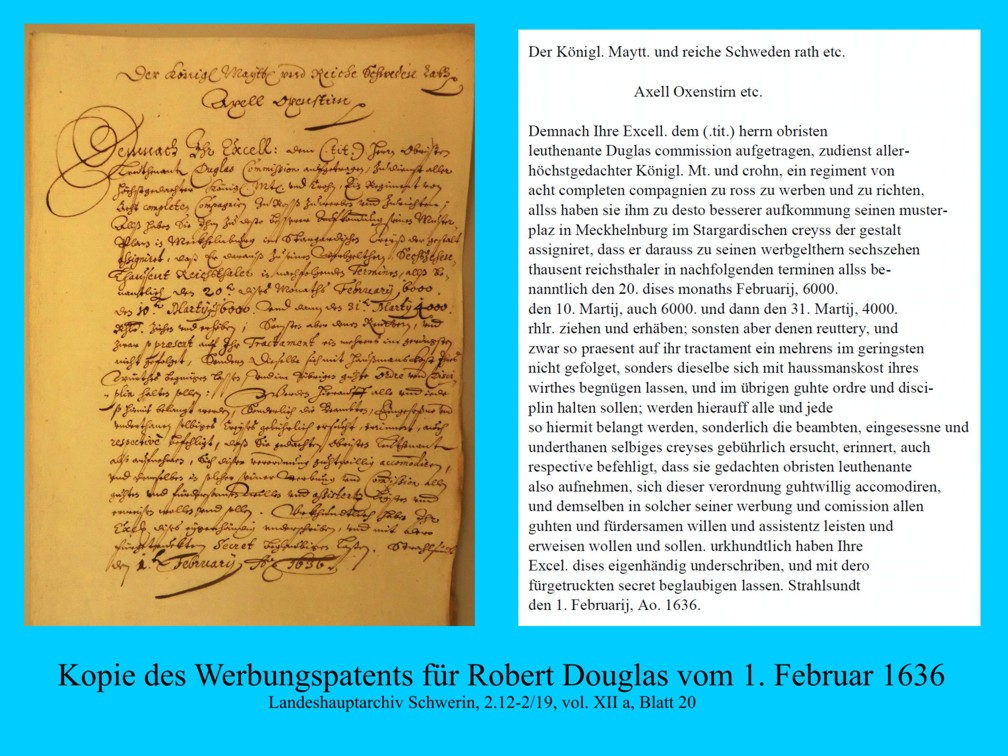 Der Königl Maytt und Reiche Schweden Rath
Axell Oxenstirn
Demnach Ihr Excell: dem (.tit.) herrn Obristen
Leuthenante Duglas Commission aufgetragen, zudienst aller
höchstgedachter Königl. Mtt. und Crohn, ein Regiment von
Acht completen Compagnien zu Roß zu werben und zu richten,
Allß haben sie ihm zu desto besserer aufkommung seinen Muster
Plaz in Meckhelnburg im Stargardischen Creyß der gestalt
assigniret, daß er darauß zu seinen werbgelthern Sechszehen
thausent Reichsthaler in nachfolgenden Terminen, allß be-
nanntlich den 20. dises Monaths Februarij 6000.
den 10. Martij 6000. und dann den 31. Martij 4000.
Rthlr. ziehen und erhäben; Sonsten aber denen Reuttern, und
zwar so præsent auf ihr Tractament ein mehrens im geringsten
nicht gefolget, sonders dieselbe sich mit haußmanskost ihres
wirthes begnügen lassen und im übrigen guhte ordre und Disci-
plin halten sollen; Werden hierauff alle und jede
so hiemit belangt werden, sonderlich die Beambten, Eingesessne und
underthanen selbiges Creyses gebührlich ersucht, erinnert, auch
respective befehligt, daß Sie gedachten Obristen Leuthenant
also aufnehmen, sich diser verordnung guhtwillig accomodiren,
und demselben in solcher seiner Werbung und Comission allen
guhten und fürdersamen willen und assistentz leisten und
erweisen wollen und sollen. Uhrkhundtlich haben Ihr
Excell. dises eigenhändig underschriben, und mit dero
fürgetruckten Secret beglaubigen lassen. Strahlsundt
den 1. Februarij Ao. 1636.
Der Königl. Maytt. und reiche Schweden rath etc.
Axell Oxenstirn etc.
Demnach Ihre Excell. dem (.tit.) herrn obristen
leuthenante Duglas commission aufgetragen, zudienst aller-
höchstgedachter Königl. Mt. und crohn, ein regiment von
acht completen compagnien zu ross zu werben und zu richten,
allss haben sie ihm zu desto besserer aufkommung seinen muster-
plaz in Meckhelnburg im Stargardischen creyss der gestalt
assigniret, dass er darauss zu seinen werbgelthern sechszehen
thausent reichsthaler in nachfolgenden terminen allss be-
nanntlich den 20. dises monaths Februarij, 6000.
den 10. Martij, auch 6000. und dann den 31. Martij, 4000.
rhlr. ziehen und erhäben; sonsten aber denen reuttery, und
zwar so praesent auf ihr tractament ein mehrens im geringsten
nicht gefolget, sonders dieselbe sich mit haussmanskost ihres
wirthes begnügen lassen, und im übrigen guhte ordre und disci-
plin halten sollen; werden hierauff alle und jede
so hiermit belangt werden, sonderlich die beambten, eingesessne und
underthanen selbiges creyses gebührlich ersucht, erinnert, auch
respective befehligt, dass sie gedachten obristen leuthenante
also aufnehmen, sich dieser verordnung guhtwillig accomodiren,
und demselben in solcher seiner werbung und comission allen
guhten und fürdersamen willen und assistentz leisten und
erweisen wollen und sollen. urkhundtlich haben Ihre
Excel. dises eigenhändig underschriben, und mit dero
fürgetruckten secret beglaubigen lassen. Strahlsundt
den 1. Februarij, Ao. 1636.
Kopie des Werbungspatents für Robert Douglas vom 1. Februar 1636
Landeshauptarchiv Schwerin, 2.12-2/19, vol. XII a, Blatt 20